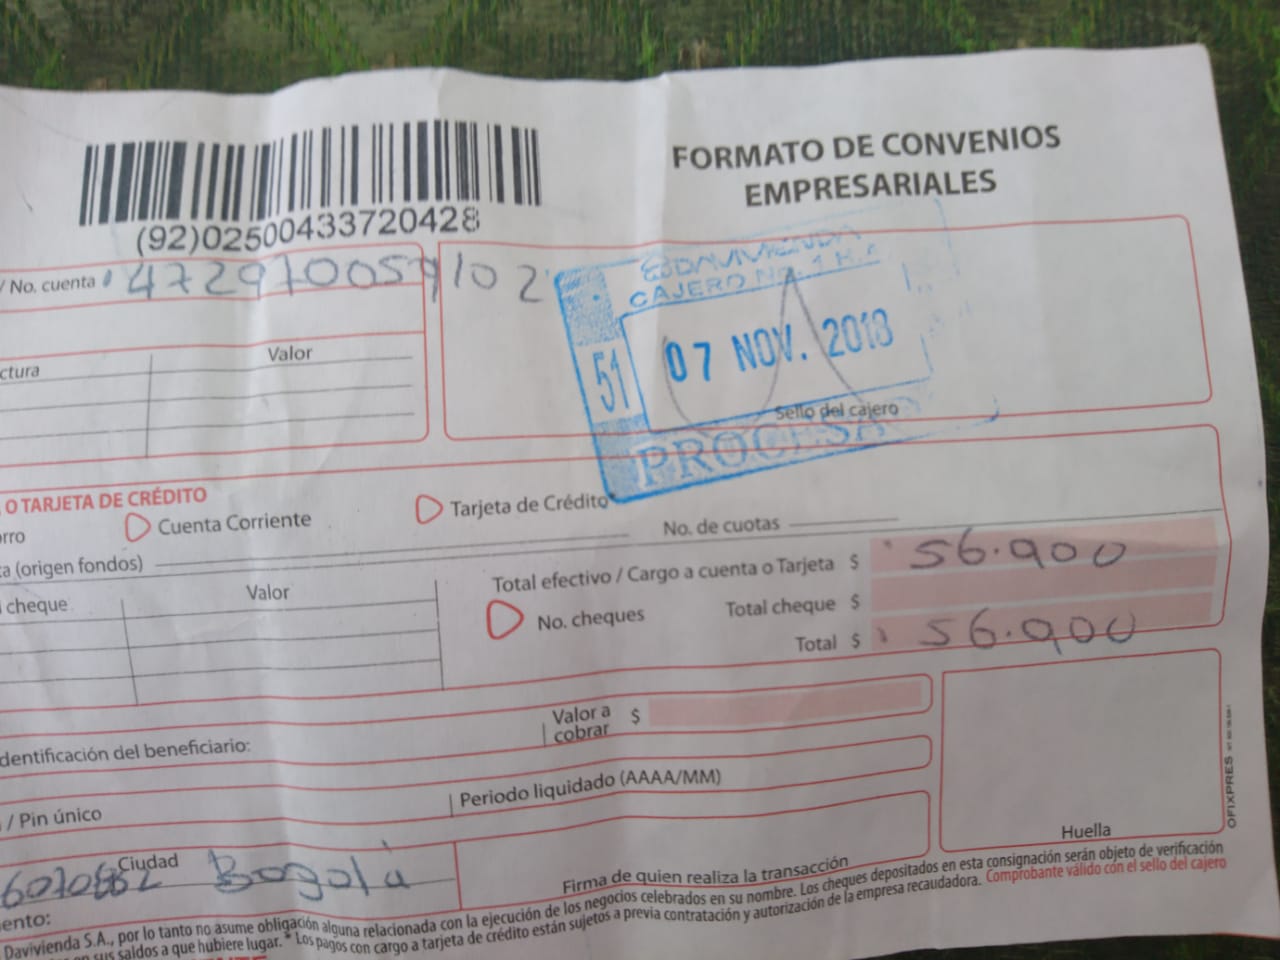 FORMATO DE CONVENIOS
EMPRESARIALES
(92)02500433720428
/ No. cuenta 472970059102
ctura
Valor
DAVIVIENDA
CAJERO No. 1
51
07 NOV. 2018
Sello del cajero
PROCESA
O TARJETA DE CRÉDITO
rro
Cuenta Corriente
Tarjeta de Crédito*
No. de cuotas
ta (origen fondos)
cheque
Valor
Total efectivo / Cargo a cuenta o Tarjeta $ 56.900
No. cheques
Total cheque $
Total $ 56.900
Valor a
cobrar $
dentificación del beneficiario:
/ Pin único
Periodo liquidado (AAAA/MM)
Ciudad
Bogotá
Firma de quien realiza la transacción
Huella
OFIXPRES
ento:
Davivienda S.A., por lo tanto no asume obligación alguna relacionada con la ejecución de los negocios celebrados en su nombre. Los cheques depositados en esta consignación serán objeto de verificación
en sus saldos a que hubiere lugar. * Los pagos con cargo a tarjeta de crédito están sujetos a previa contratación y autorización de la empresa recaudadora. Comprobante válido con el sello del cajero